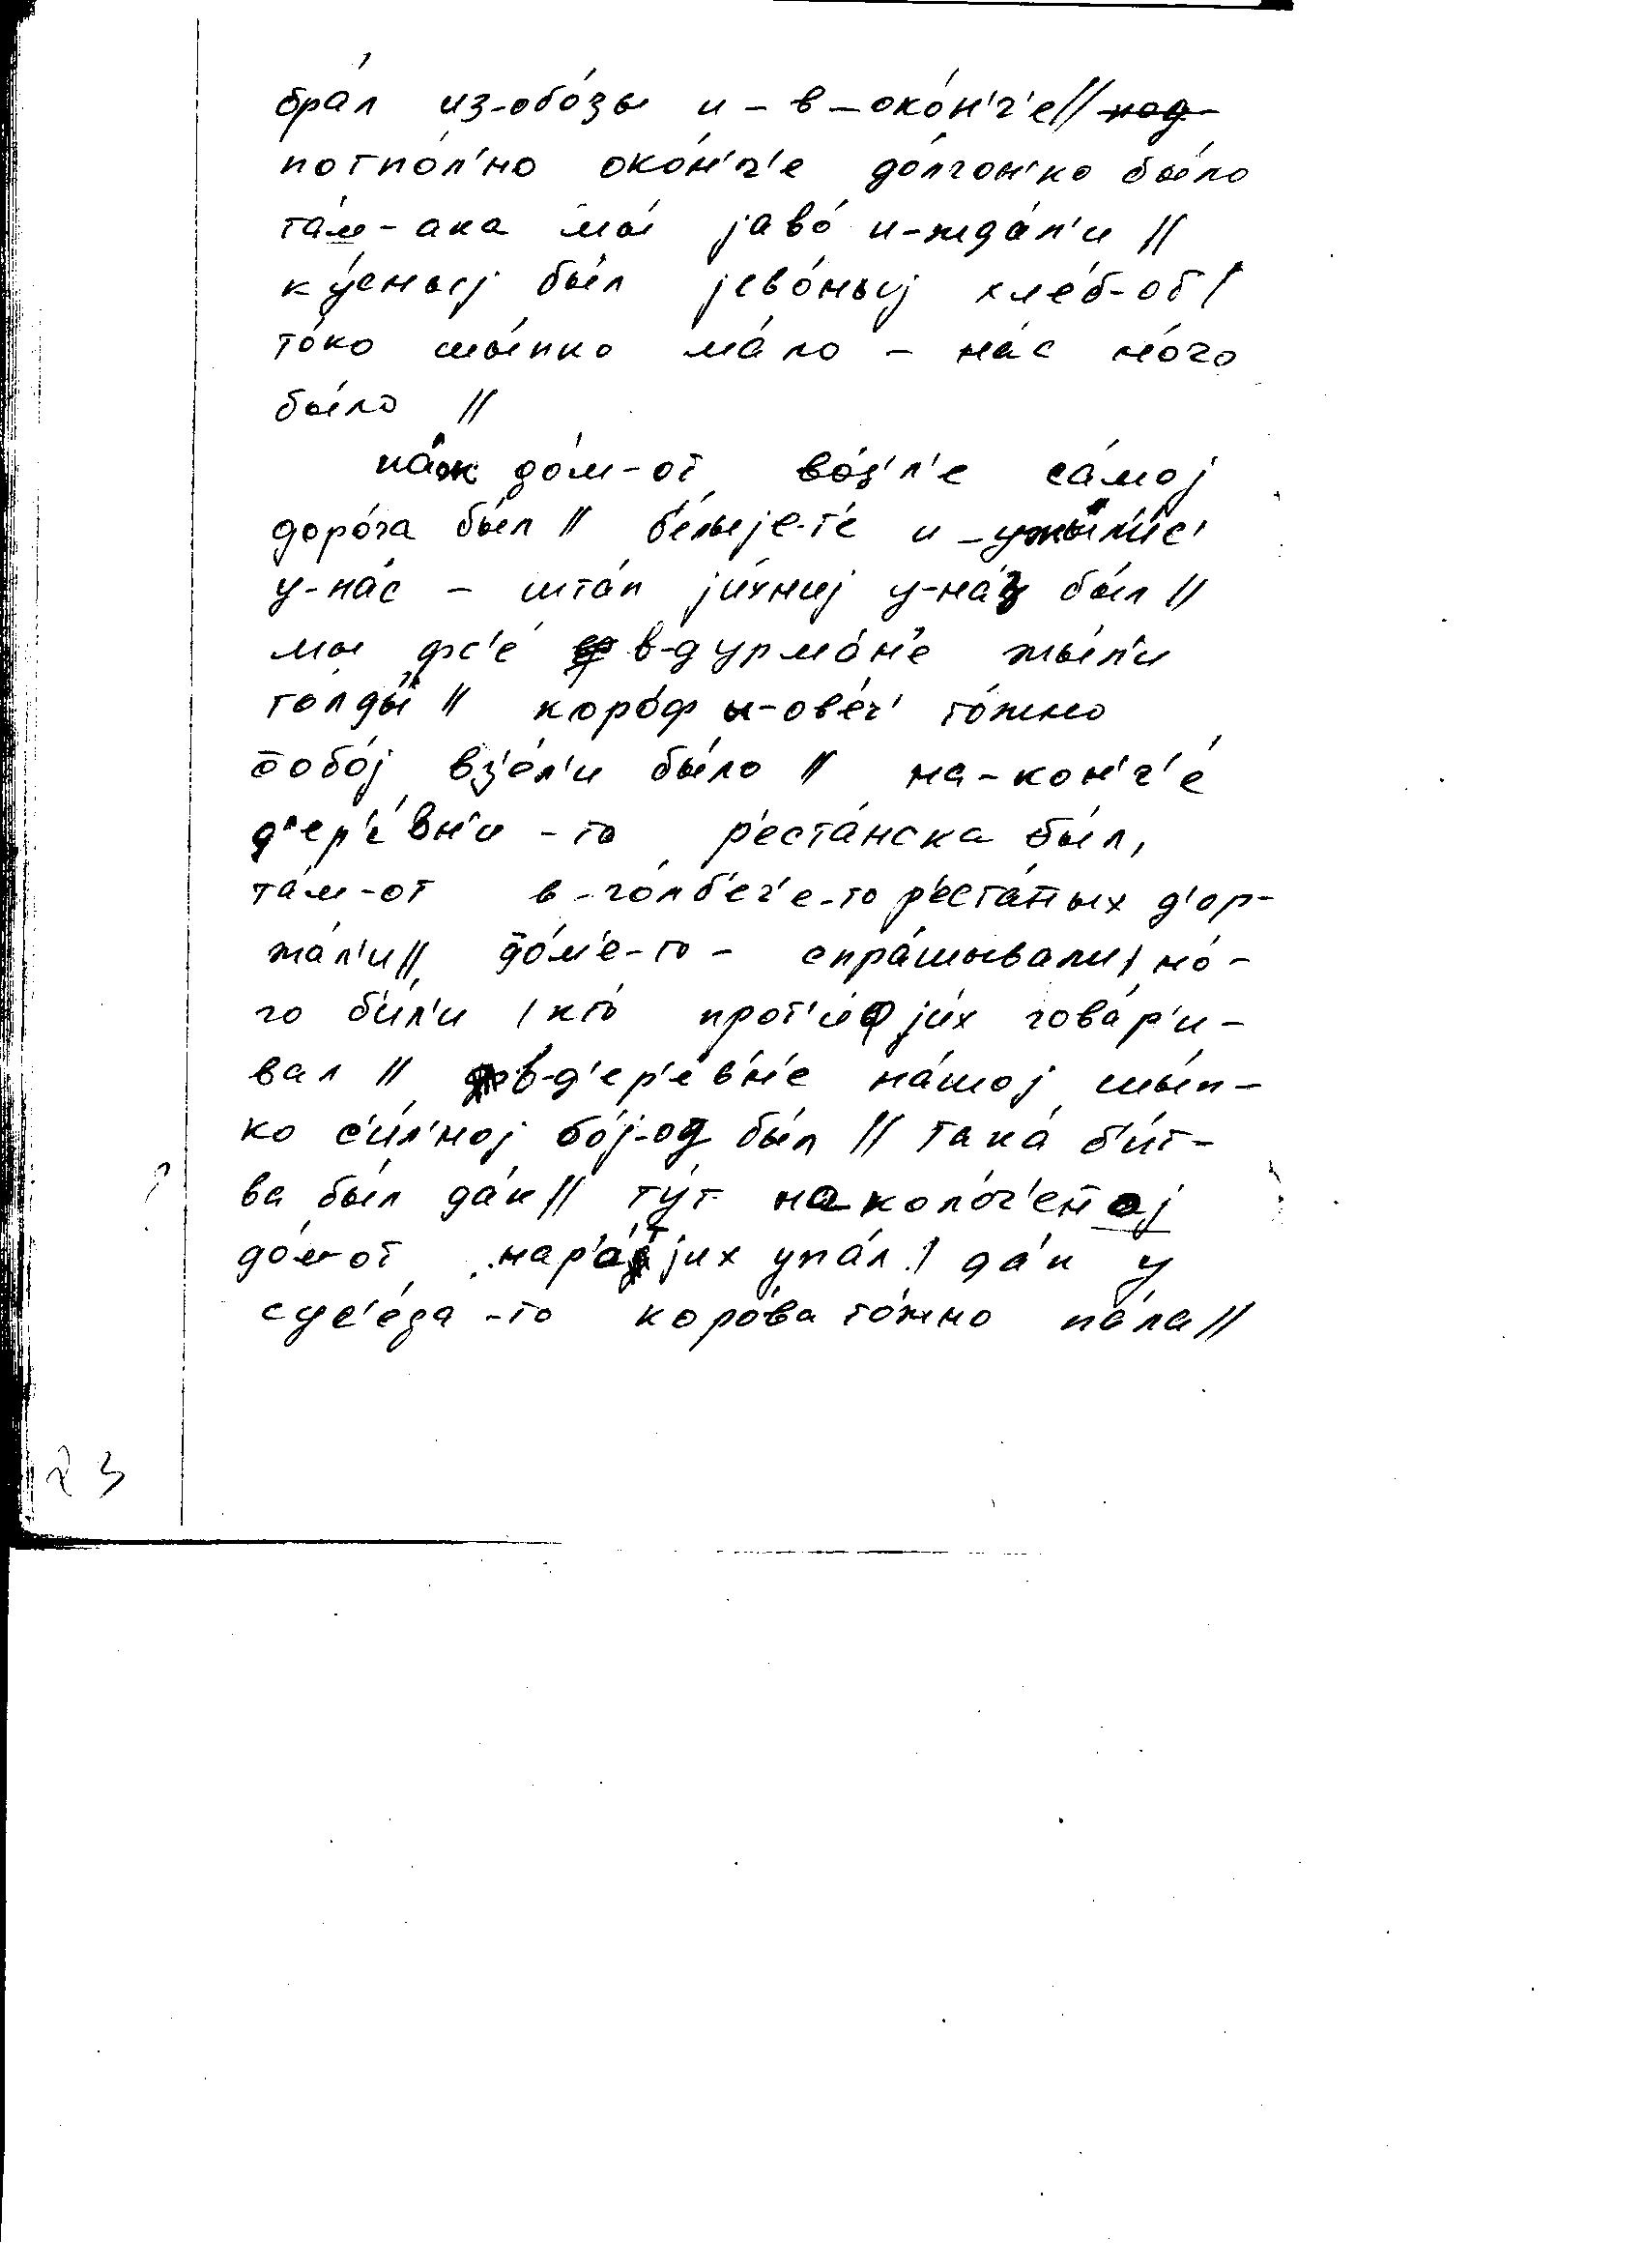 бра́л из-обо́зы и-в-око́н'ч'е// под-
потпо́л'но око́н'ч'е до́лгон'ко бы́ло
та́м-ака мы́ јаво́ и-жда́л'и //
ку́сныј бы́л јево́ныј хле́б-от /
то́ко шы́пко ма́ло - на́с мо́го
бы́ло //
на́ж до́м-от во́з'л'е са́мој
доро́га бы́л // б'е́лыје-т'е и-ужы́л'ис'
у-на́с - шта́п ји́хниј у-на́з бы́л //
мы фс'е́ в-дурмо́н'е жы́л'и
толды́ // коро́ф ы-ове́ч' то́жно
собо́ј вз'е́л'и бы́ло // на-кон'ч'е́
д'ер'е́вн'и-то р'еста́нска бы́л,
та́м-от в-го́лб'еч'е-то р'еста́тых д'ор-
жа́л'и// до́м'е-то - спра́шывали/ мо́-
го би́л'и / кто́ прот'и́ф ји́х гова́р'и-
вал // в-д'ер'е́вн'е на́шој шы́п-
ко с'и́л'ној бо́ј-од бы́л // така́ б'и́т-
ва бы́л да́к// ту́т на коло́ч'еној
до́м от нар'а́т јих упа́л / да́к у
сус'е́да-то коро́ва то́жно па́ла//
23